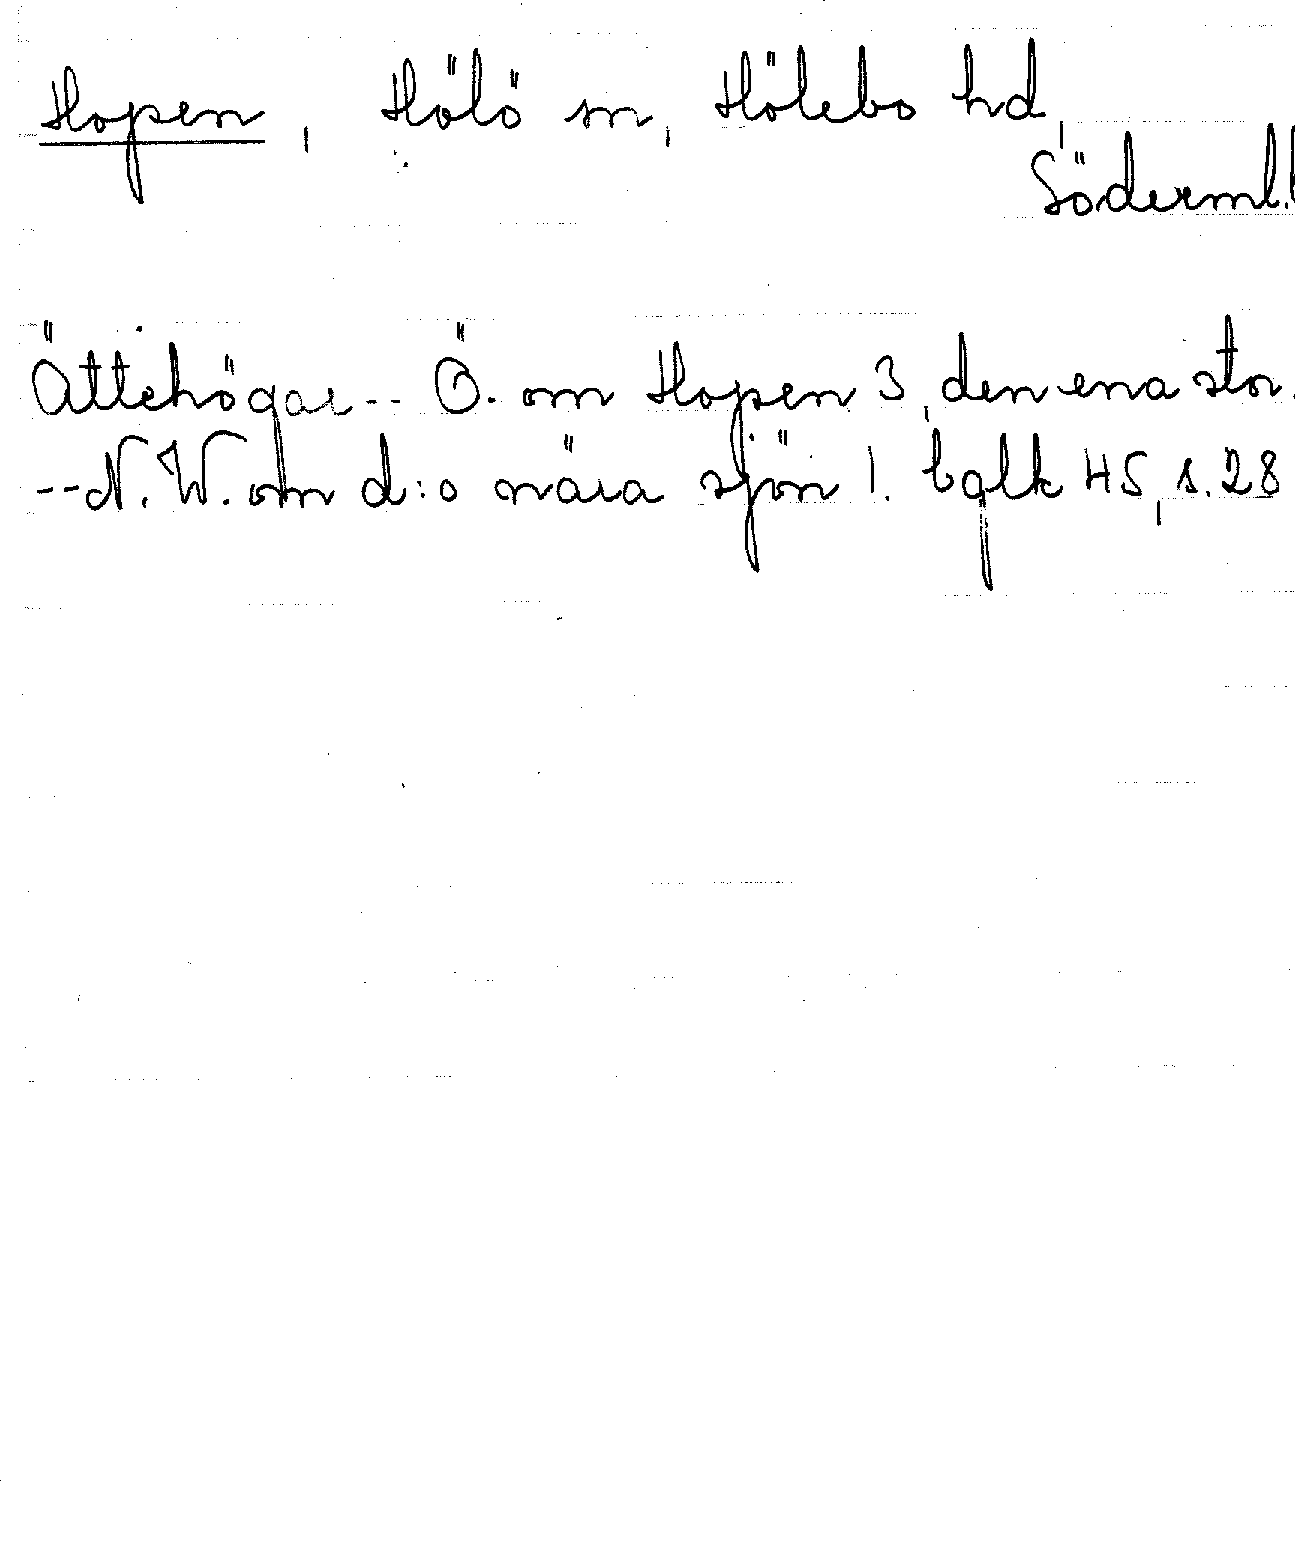 Hopen, Hölö sn, Hölebo hd,
Söderml.
Ättehögar -- Ö. om Hopen 3, den ena stor.
--N.W. om d:o nära sjön 1. bglk 45, s. 28